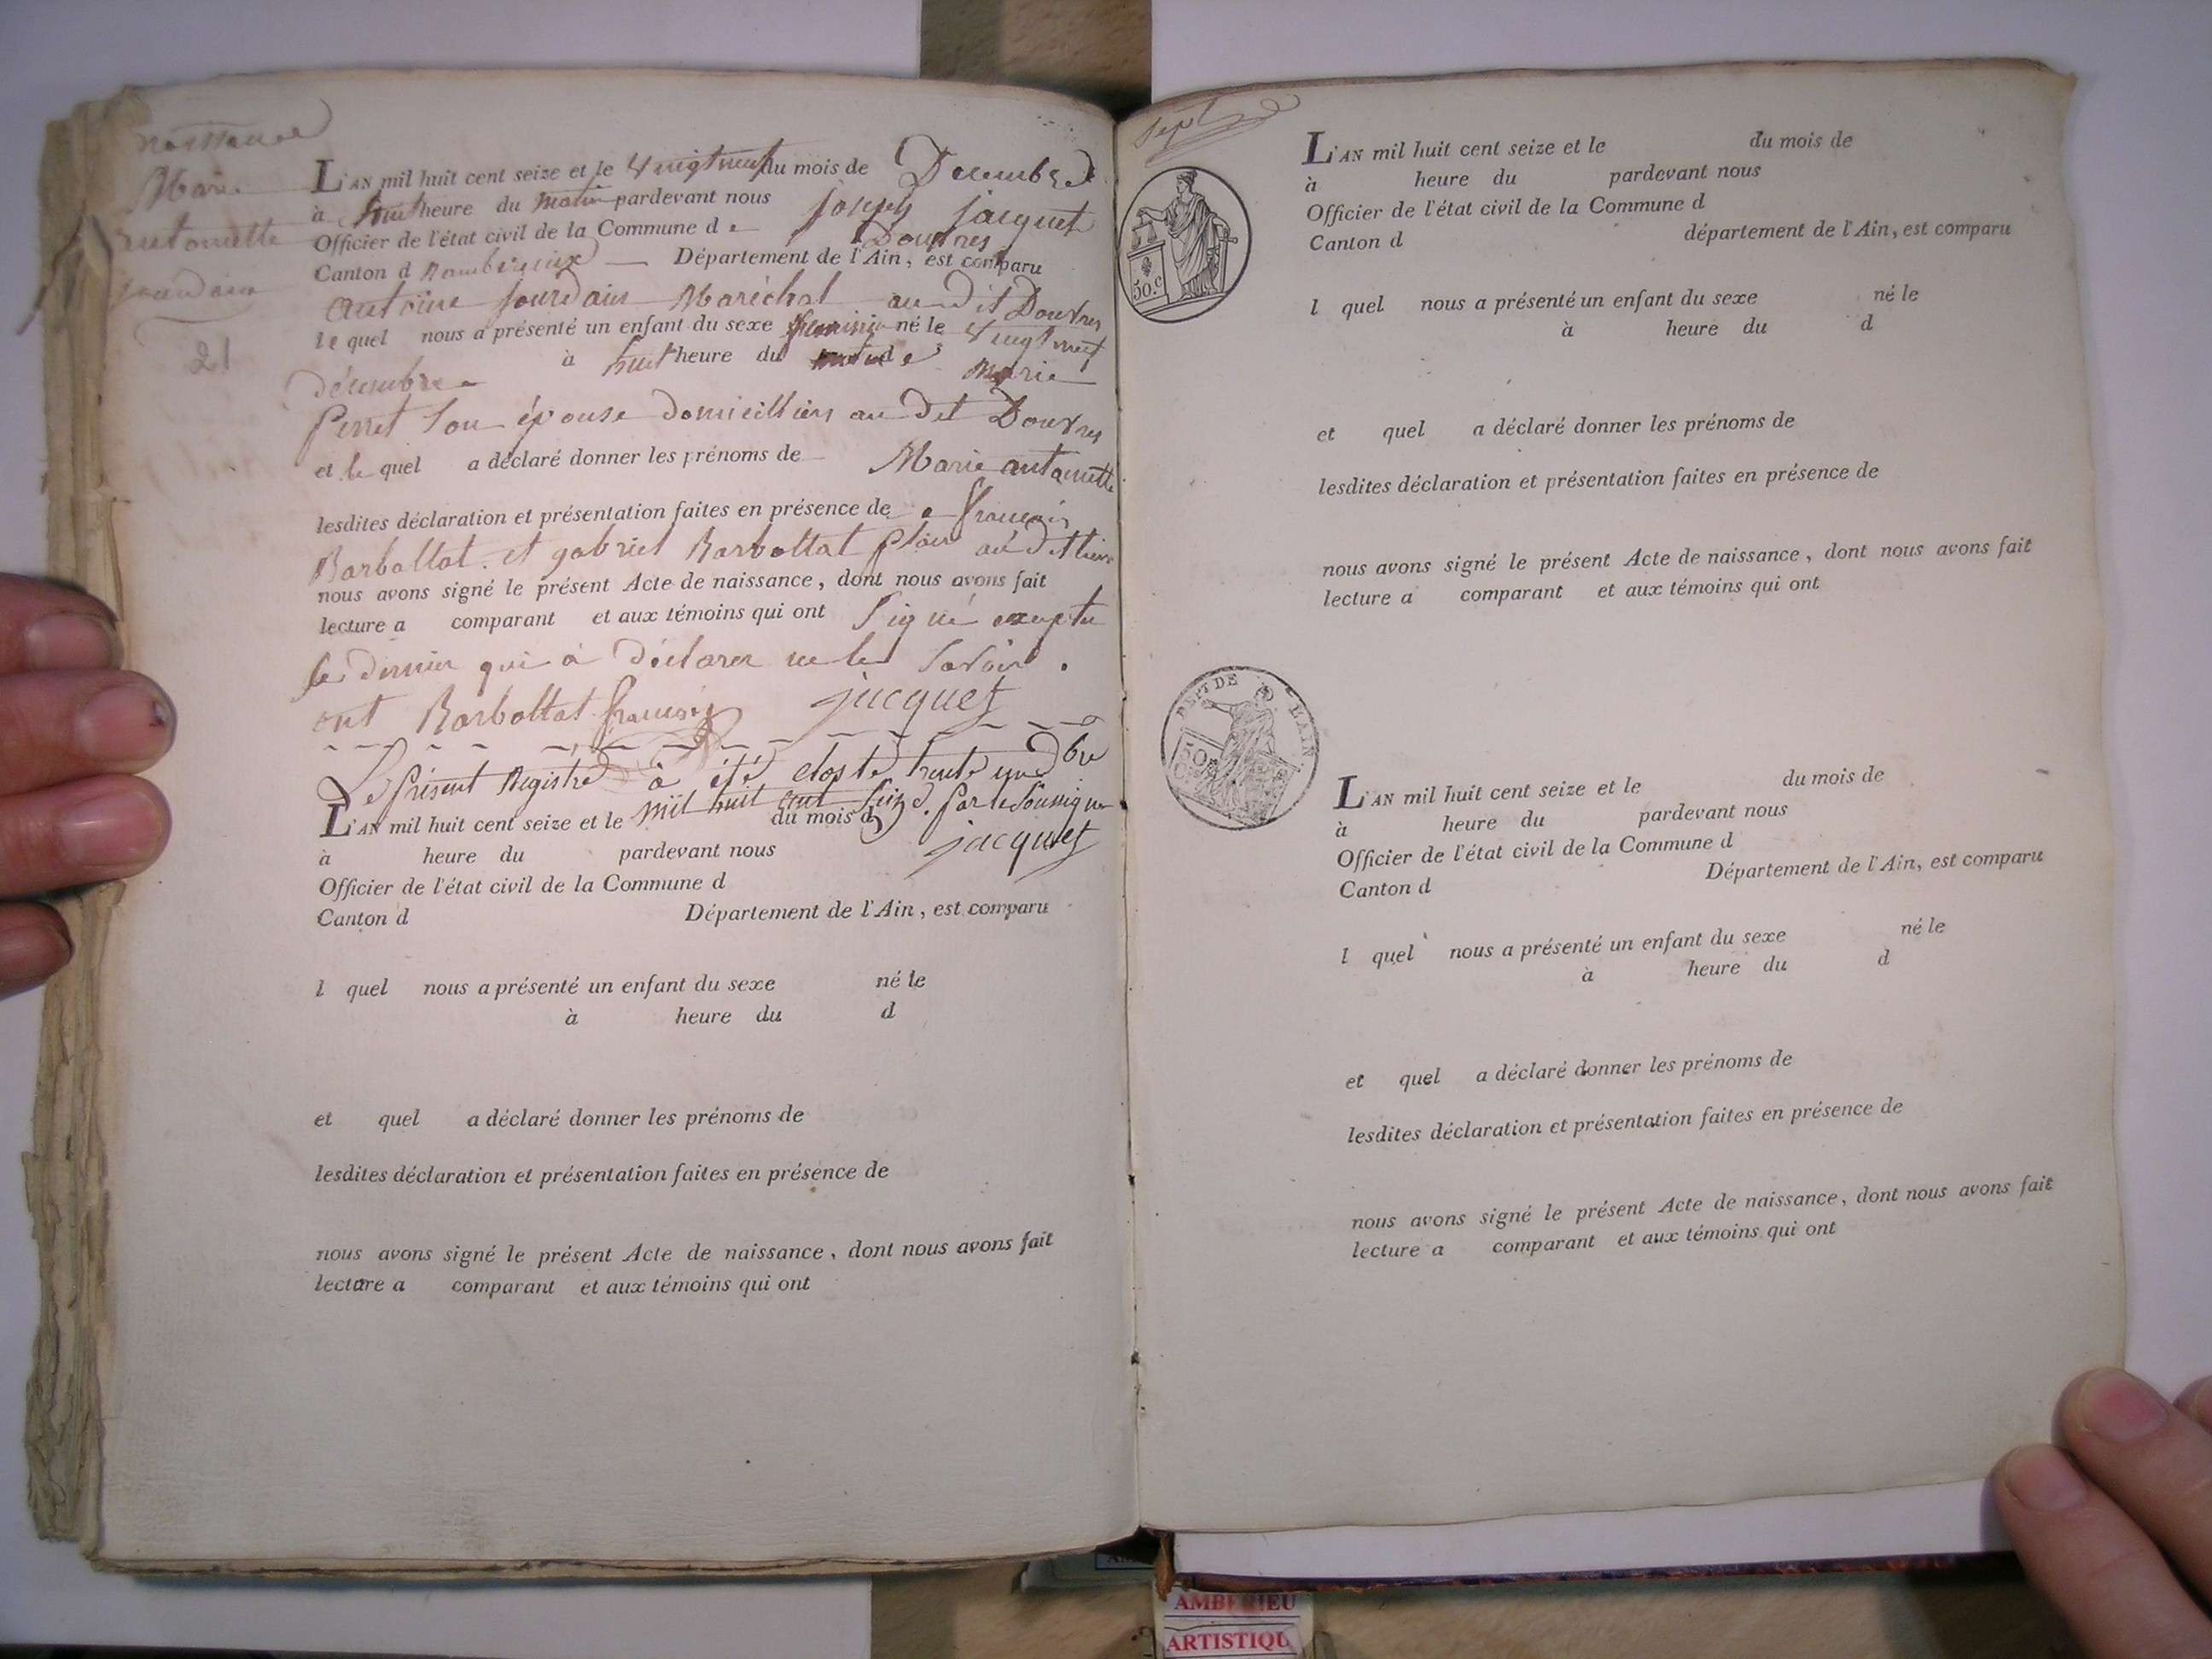 naissance
Marie
antoinette
jourdain
21
L'AN mil huit cent seize et le vingt neuf du mois de Decembre
à huit heure du matin pardevant nous joseph jacquet
Officier de l'état civil de la Commune de Douvres
Canton d Département de l'Ain, est comparu
antoine jourdain Maréchal au dit Douvres
le quel nous a présenté un enfant du sexe feminin né le vingt neuf
décembre à huit heure du matin de Marie
Perret son épouse domicilliers au dit Douvres
et le quel a déclaré donner les prénoms de Marie antoinette
lesdites déclaration et présentation faites en présence de francois
Barbollat et gabriel Barbollat au dit lieu
nous avons signé le présent Acte de naissance, dont nous avons fait
lecture a comparant et aux témoins qui ont signé excepte
le dernier qui à déclarer ne le savoir.
ont Barbollat francois jacquet
Le présent Registre à été clos le trente un Xbre
mil huit cent seize. par le soussigné
L'AN mil huit cent seize et le du mois d
jacquet
à heure du pardevant nous
Officier de l'état civil de la Commune d
Canton d Département de l'Ain, est comparu
l quel nous a présenté un enfant du sexe né le
à heure du d
et quel a déclaré donner les prénoms de
lesdites déclaration et présentation faites en présence de
nous avons signé le présent Acte de naissance, dont nous avons fait
lecture a comparant et aux témoins qui ont
sept
50.c
L'AN mil huit cent seize et le du mois de
à heure du pardevant nous
Officier de l'état civil de la Commune d
Canton d département de l'Ain, est comparu
l quel nous a présenté un enfant du sexe né le
à heure du d
et quel a déclaré donner les prénoms de
lesdites déclaration et présentation faites en présence de
nous avons signé le présent Acte de naissance, dont nous avons fait
lecture a comparant et aux témoins qui ont
DEPT DE L'AIN
50
L'AN mil huit cent seize et le du mois de
à heure du pardevant nous
Officier de l'état civil de la Commune d
Canton d Département de l'Ain, est comparu
l quel nous a présenté un enfant du sexe né le
à heure du d
et quel a déclaré donner les prénoms de
lesdites déclaration et présentation faites en présence de
nous avons signé le présent Acte de naissance, dont nous avons fait
lecture a comparant et aux témoins qui ont
AMBERIEU
ARTISTIQU